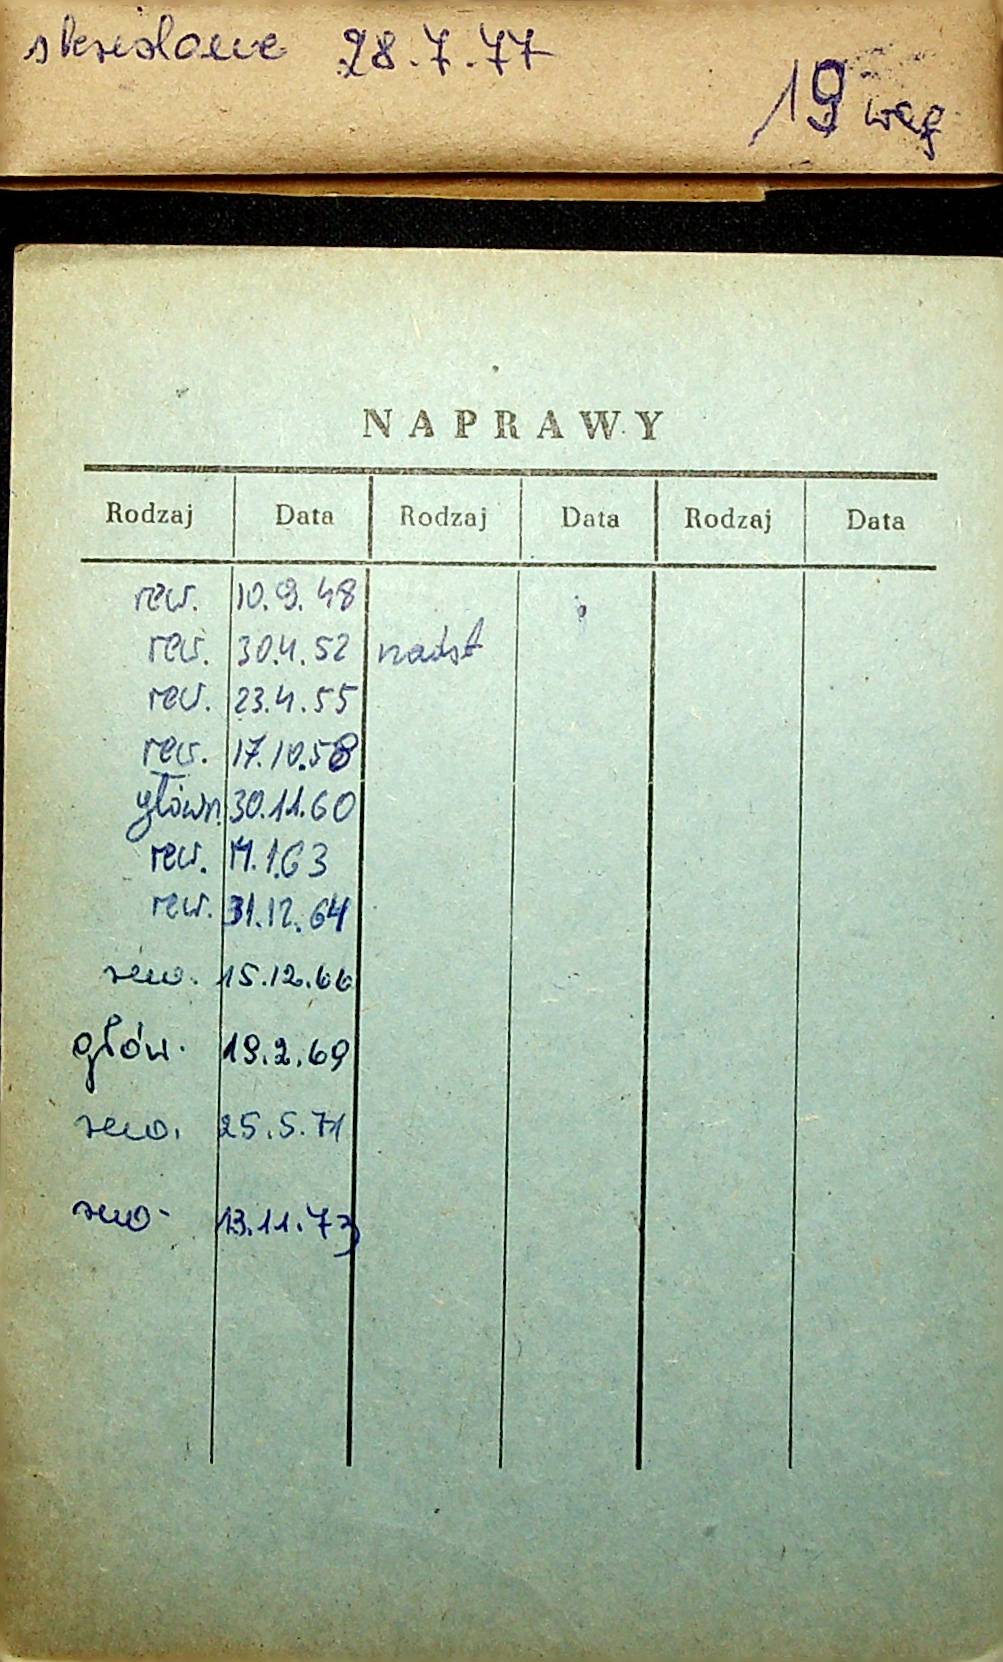 skreślone 28.7.77
19 wag
NAPRAWY
Rodzaj Data Rodzaj Data Rodzaj Data
rew. 10.9.48
rew. 30.4.52 nadst
rew. 23.4.55
rew. 17.10.58
główn. 30.11.60
rew. 11.1.63
rew. 31.12.64
rew. 15.12.66
głów. 19.2.69
rew. 25.5.71
rew. 13.11.73